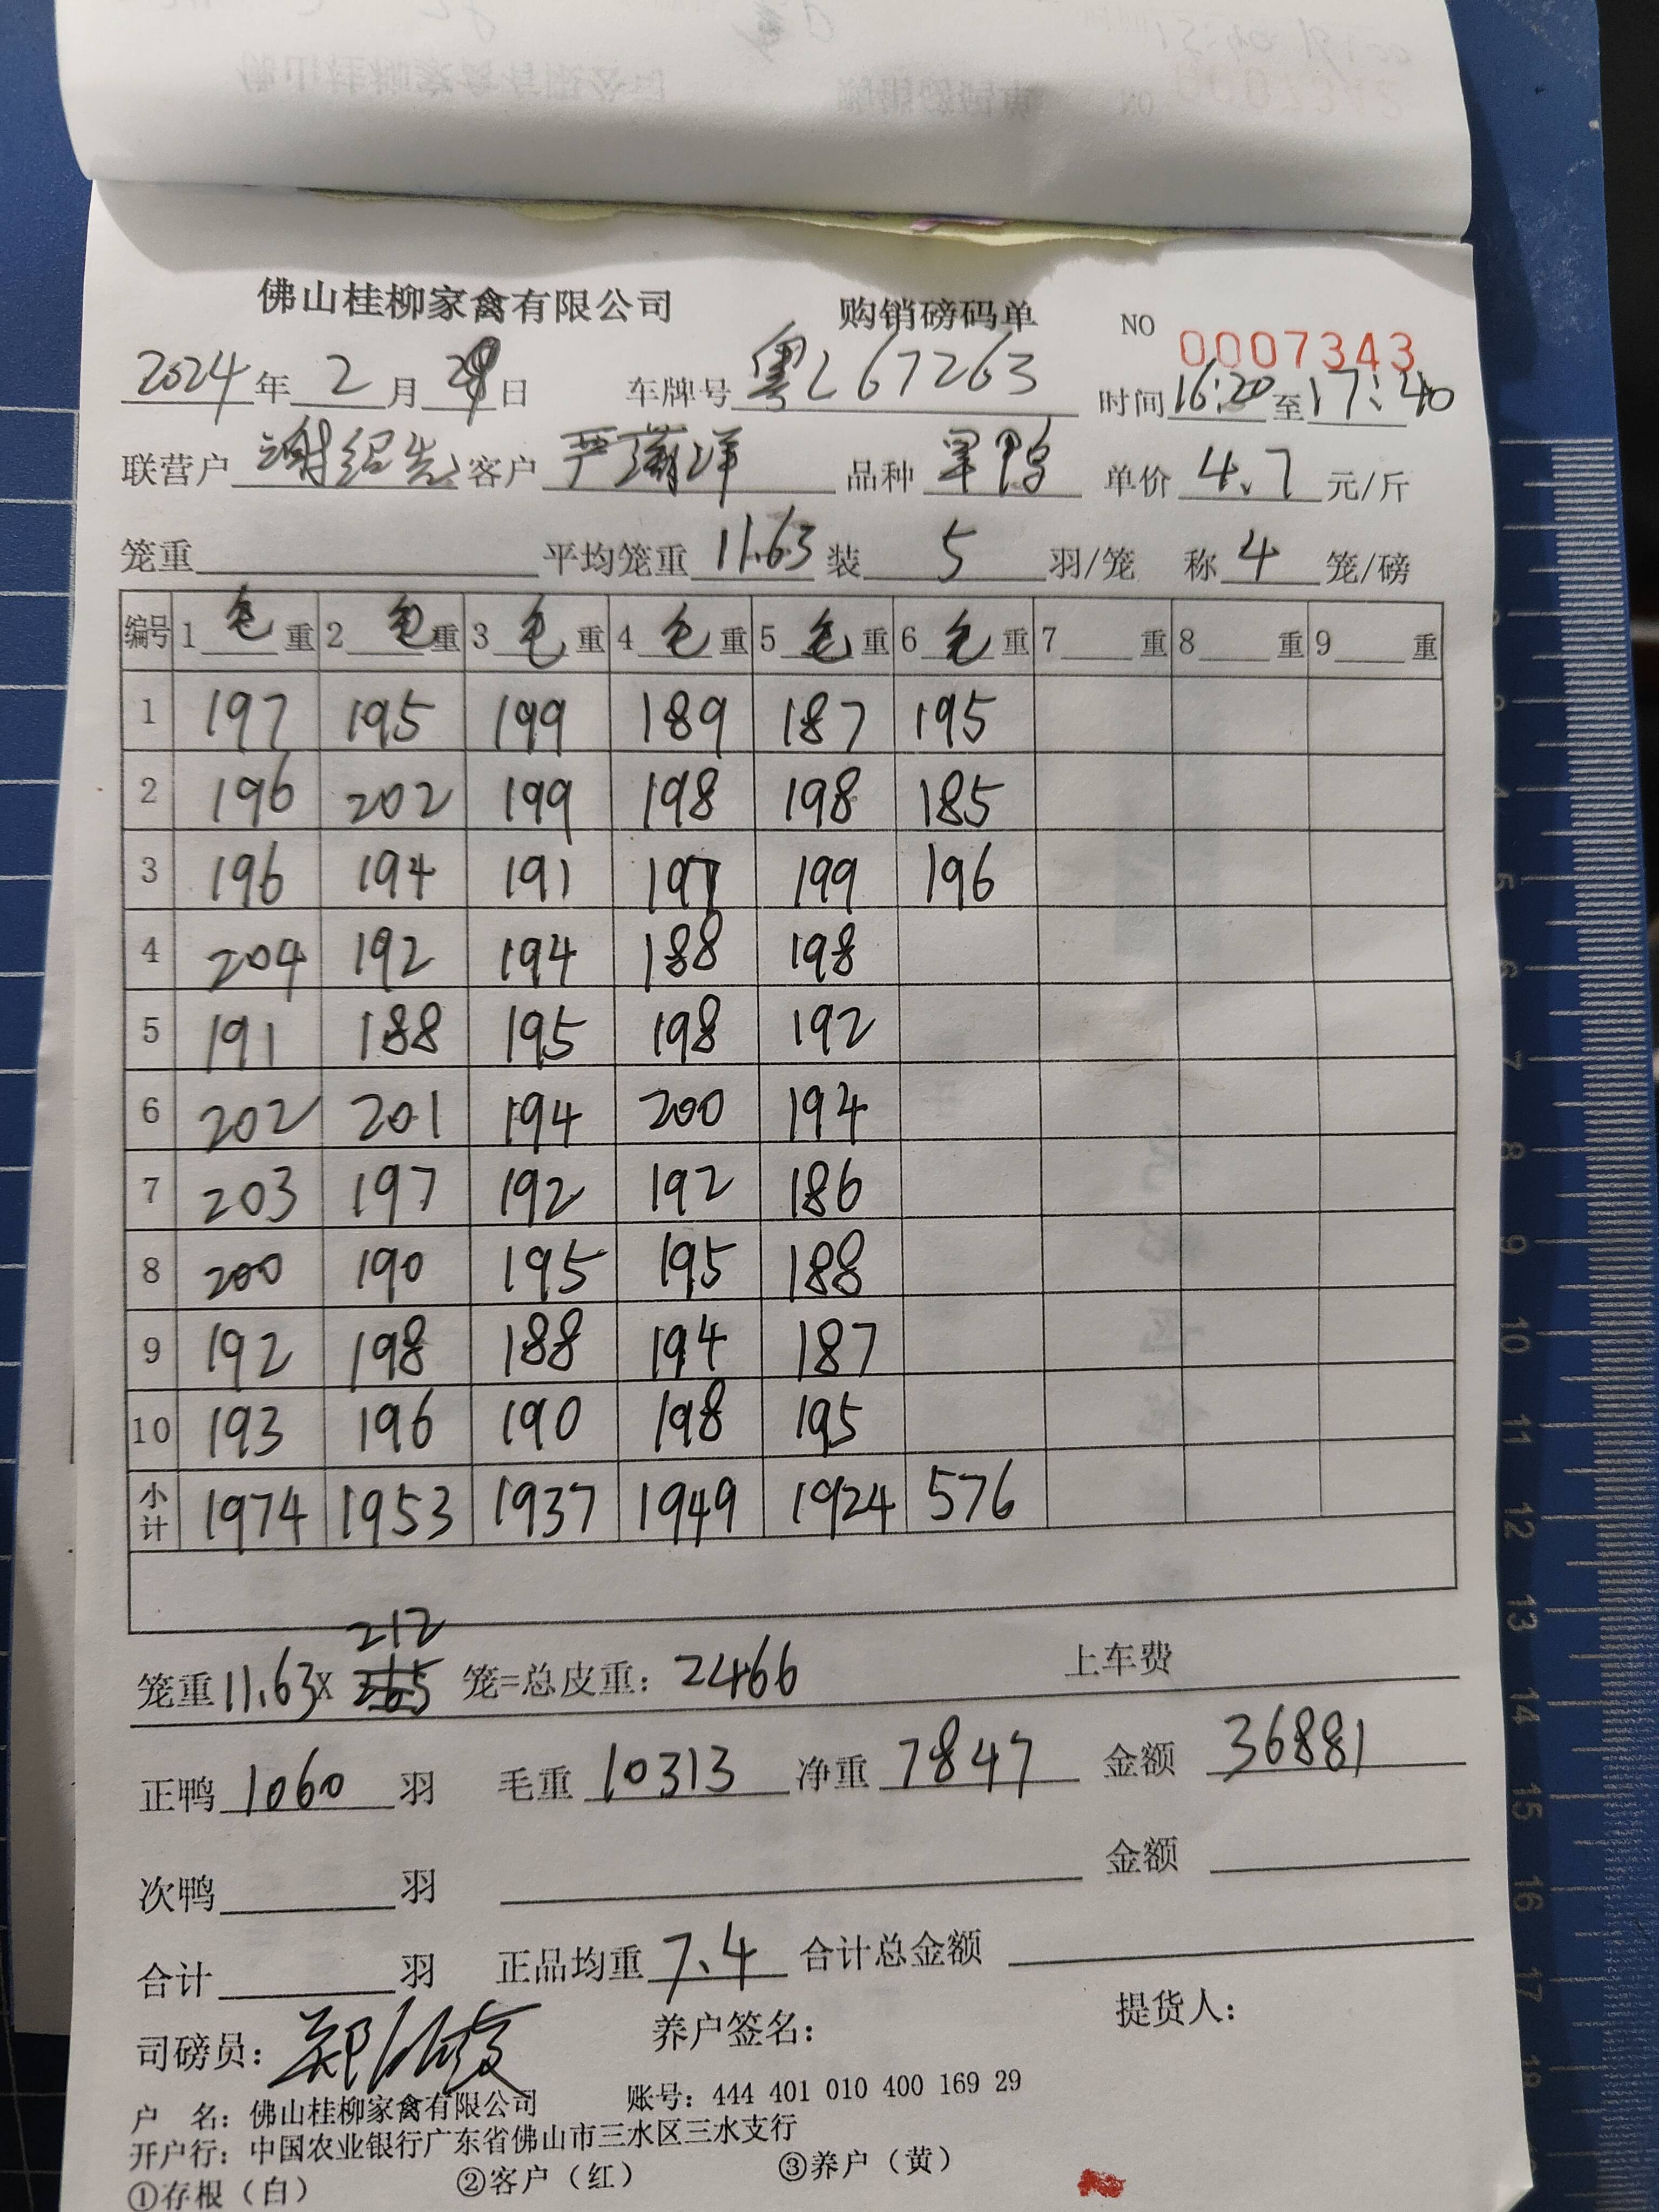 佛山桂柳家禽有限公司 购销磅码单 NO 0007343
2024年2月29日 车牌号粤L67263 时间16:20至17:40
联营户谢绍先 客户 严 品种 单价4.7元/斤
笼重 平均笼重11.63装5羽/笼 称4笼/磅
编号 1毛重 2毛重 3毛重 4毛重 5毛重 6毛重 7重 8重 9重
1 197 195 199 189 187 195
2 196 202 199 198 198 185
3 196 194 191 197 199 196
4 204 192 194 188 198
5 191 188 195 198 192
6 202 201 194 200 194
7 203 197 192 192 186
8 200 190 195 195 188
9 192 198 188 194 187
10 193 196 190 198 195
小计 1974 1953 1937 1949 1924 576
212
笼重11.63X 265 笼=总皮重：2466 上车费
正鸭1060羽 毛重10313净重7847 金额36881
次鸭 羽 金额
合计 羽 正品均重7.4 合计总金额
司磅员： 养户签名： 提货人：
户 名：佛山桂柳家禽有限公司 账号：444 401 010 400 169 29
开户行：中国农业银行广东省佛山市三水区三水支行
①存根（白） ②客户（红） ③养户（黄）